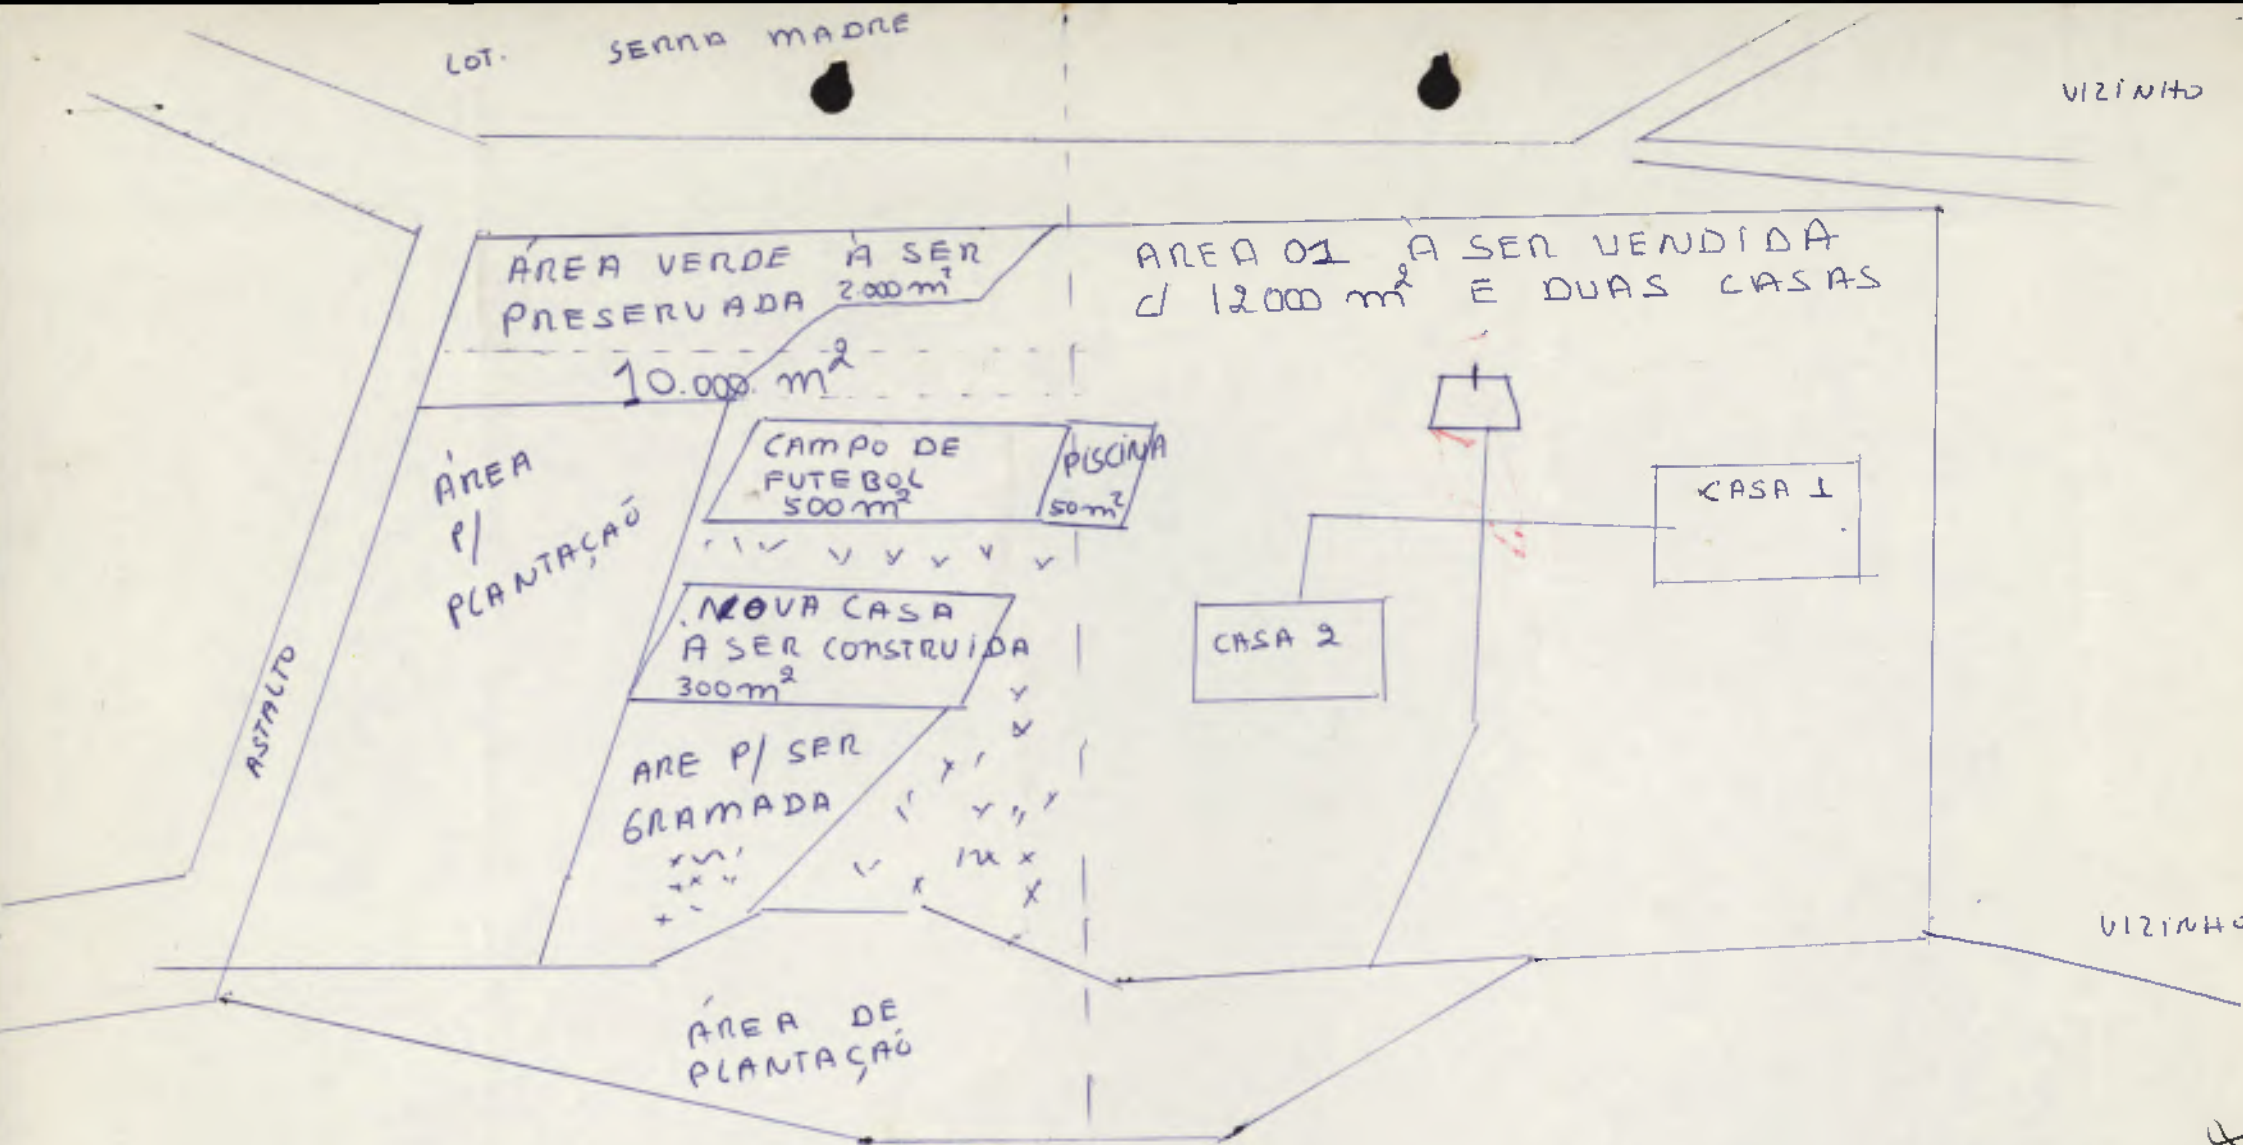 LOT. SERRA MADRE
VIZINHO
ÁREA VERDE À SER
PRESERVADA 2.000 m²
10.000 m²
AREA 01 À SER VENDIDA
c/ 12000 m² E DUAS CASAS
ÁREA
P/
PLANTAÇAÕ
CAMPO DE
FUTEBOL
500 m²
PISCINA
50 m²
CASA 1
NOVA CASA
A SER CONSTRUIDA
300 m²
CASA 2
ASFALTO
ARE P/ SER
GRAMADA
VIZINHO
ÁREA DE
PLANTAÇAÕ